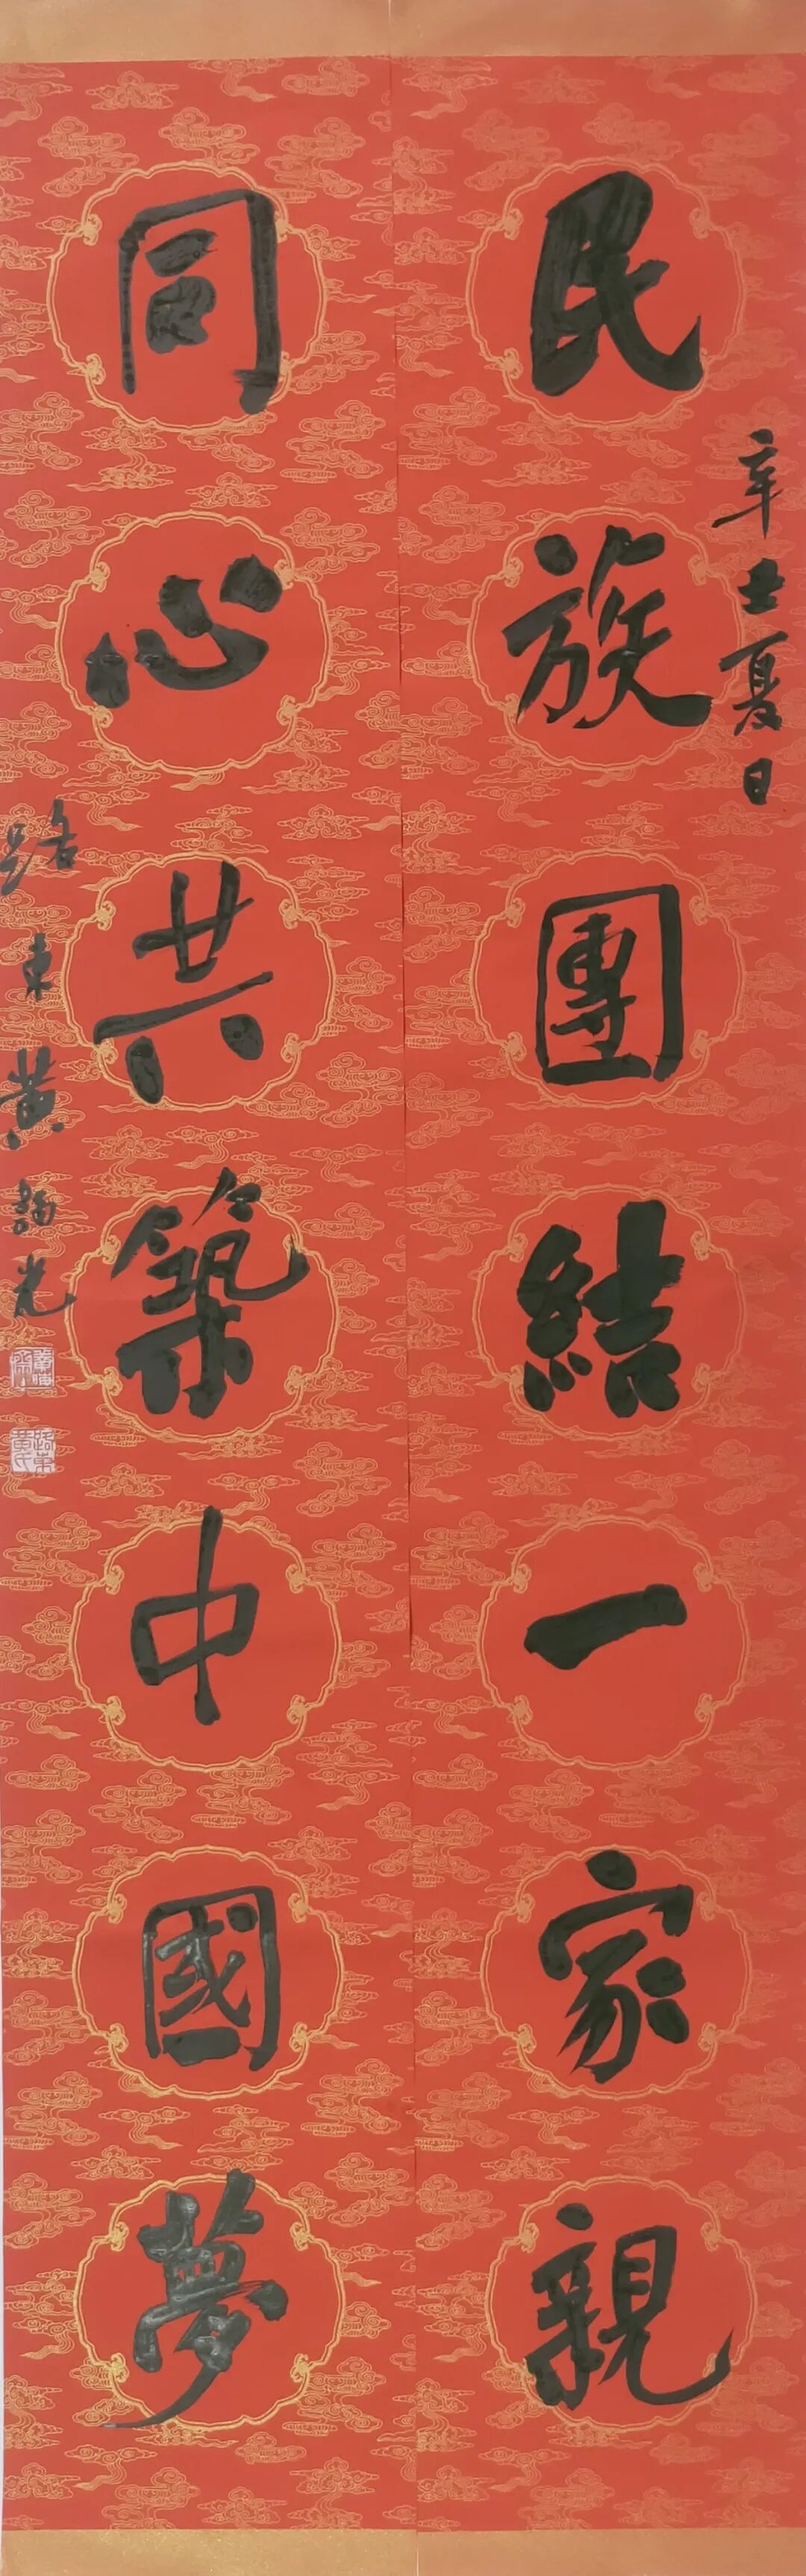 辛丑夏日
民族團結一家親
同心共築中國夢
路東黃詢光